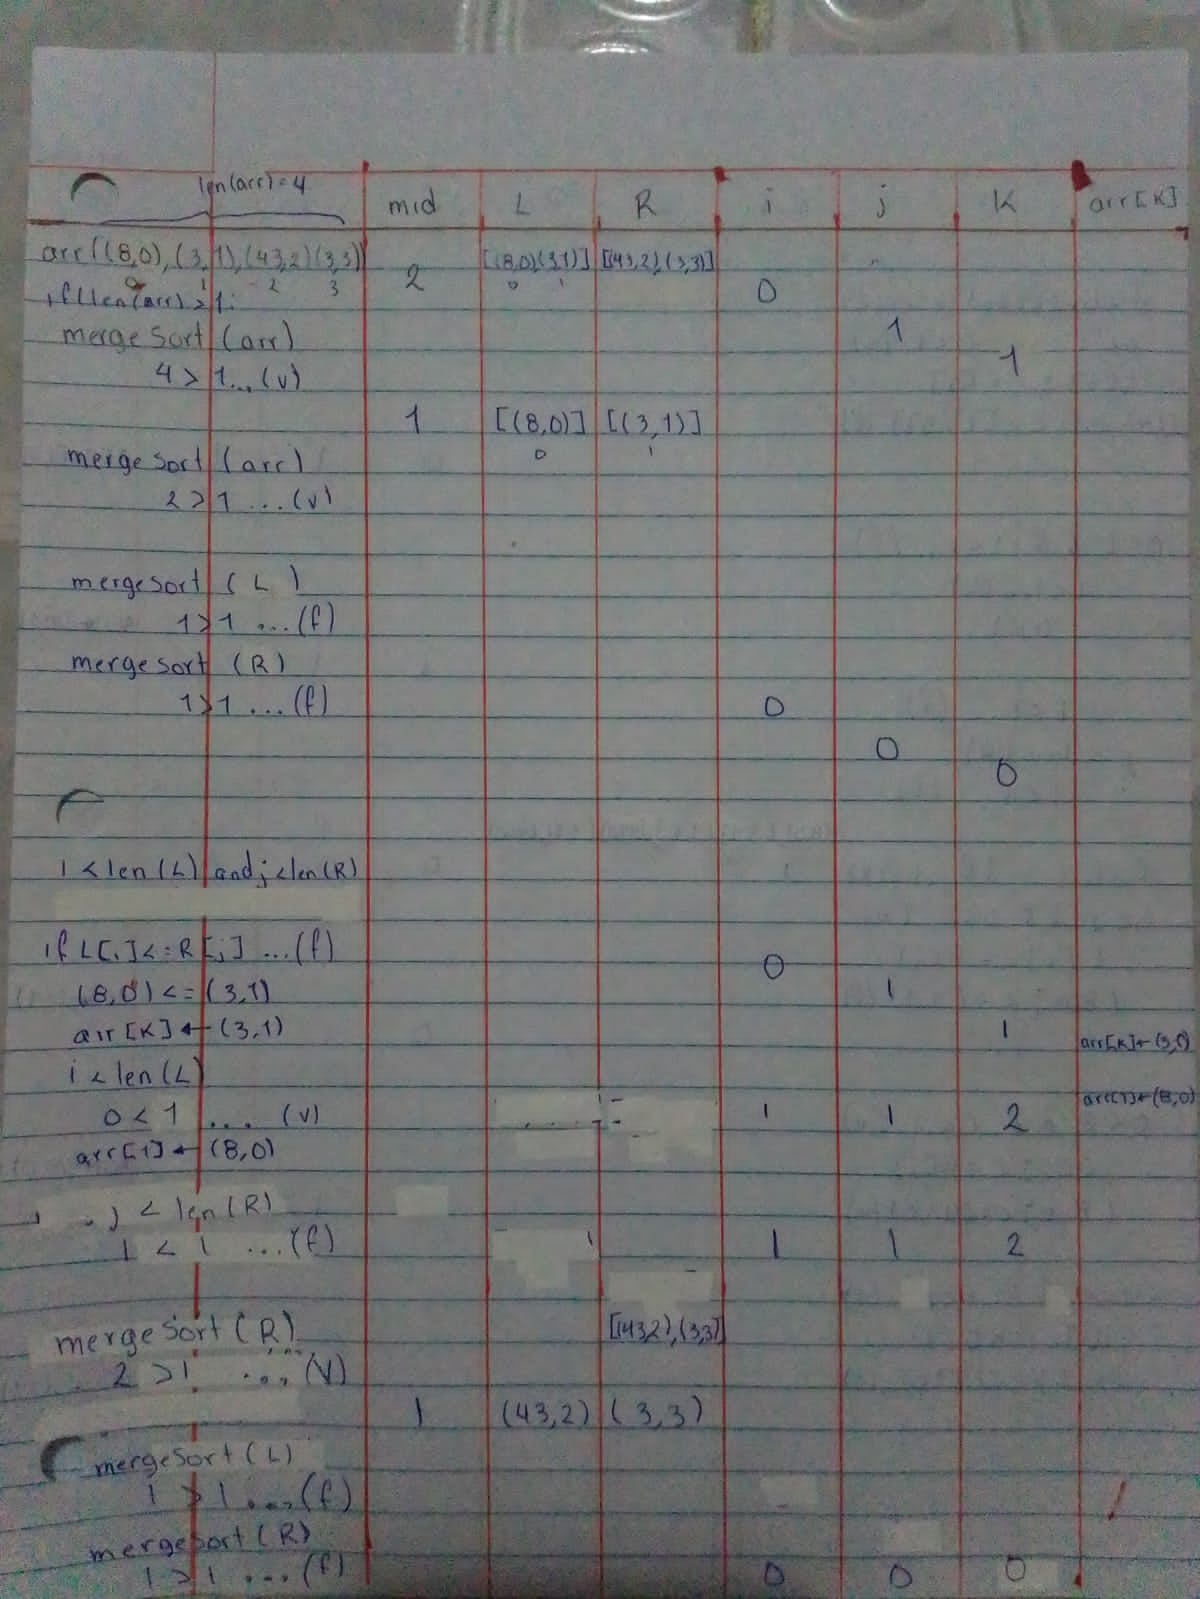 len(arr)=4
mid L R i j K arr[K]
arr((8,0),(3,1),(43,2)(3,3)) 2 [(8,0)(3,1)] [(43,2),(3,3)]
0 1 2 3 0 1
if(len(arr)>1: 0
mergeSort (arr) 1
4>1...(v) 1
1 [(8,0)] [(3,1)]
mergeSort (arr) 0 1
2>1...(v)
mergeSort (L)
1>1...(f)
mergeSort (R)
1>1...(f) 0
0
0
i<len(L) and j<len(R)
if L[i]<=R[j]...(f) 0
(8,0)<=(3,1) 1
arr[K]←(3,1) 1 arr[K]←(3,1)
i<len(L)
0<1....(v) 1 1 2 arr[1]←(8,0)
arr[1]←(8,0)
j<len(R)
1<1...(f) 1 1 2
mergeSort(R) [(43,2),(3,3]
2>1...(V)
1 (43,2) (3,3)
mergeSort(L)
1>1...(f)
mergesort(R)
1>1...(f) 0 0 0